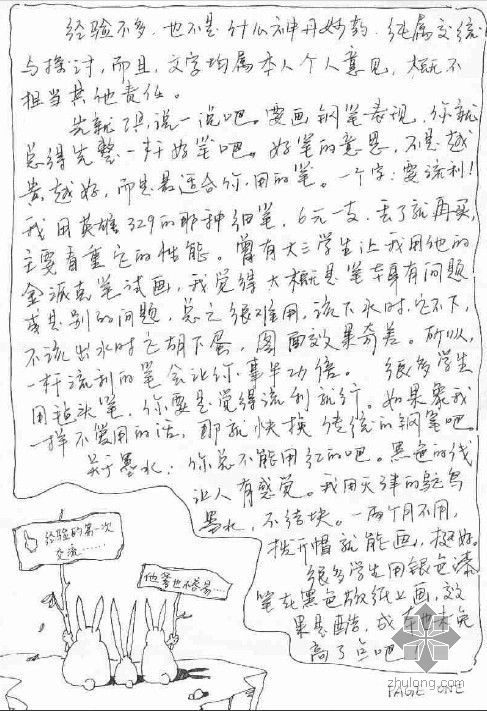 经验不多，也不是什么神丹妙药，纯属交流
与探讨，而且，文字均属本人个人意见，概不
担当其他责任。
先就工具说一说吧。要画钢笔表现，你就
总得先整一杆好笔吧。好笔的意思，不是越
贵越好，而是最适合你用的笔。一个字：要流利！
我用英雄329的那种细笔，6元一支，丢了就再买，
主要看重它的性能。曾有大三学生让我用他的
金派克笔试画，我觉得大概是笔本身有问题
或是别的问题，总之很难用，该下水时它不下，
不该出水时它胡下蛋，图面效果奇差。所以，
一杆流利的笔会让你事半功倍。 很多学生
用泡沫笔，你要是觉得流利就行。如果象我
一样不爱用的话，那就快换传统的钢笔吧
关于墨水：你总不能用红的吧。黑色的线
让人有感觉。我用天津的鸵鸟
墨水，不结块。一两个月不用，
拔开帽就能画，挺好。
很多学生用银色漆
笔在黑色版纸上画，效
果是酷，成本也未免
高了点吧！
经验的第一次
交流……
他爹也不容易……
PAGE ONE
zhulong.com